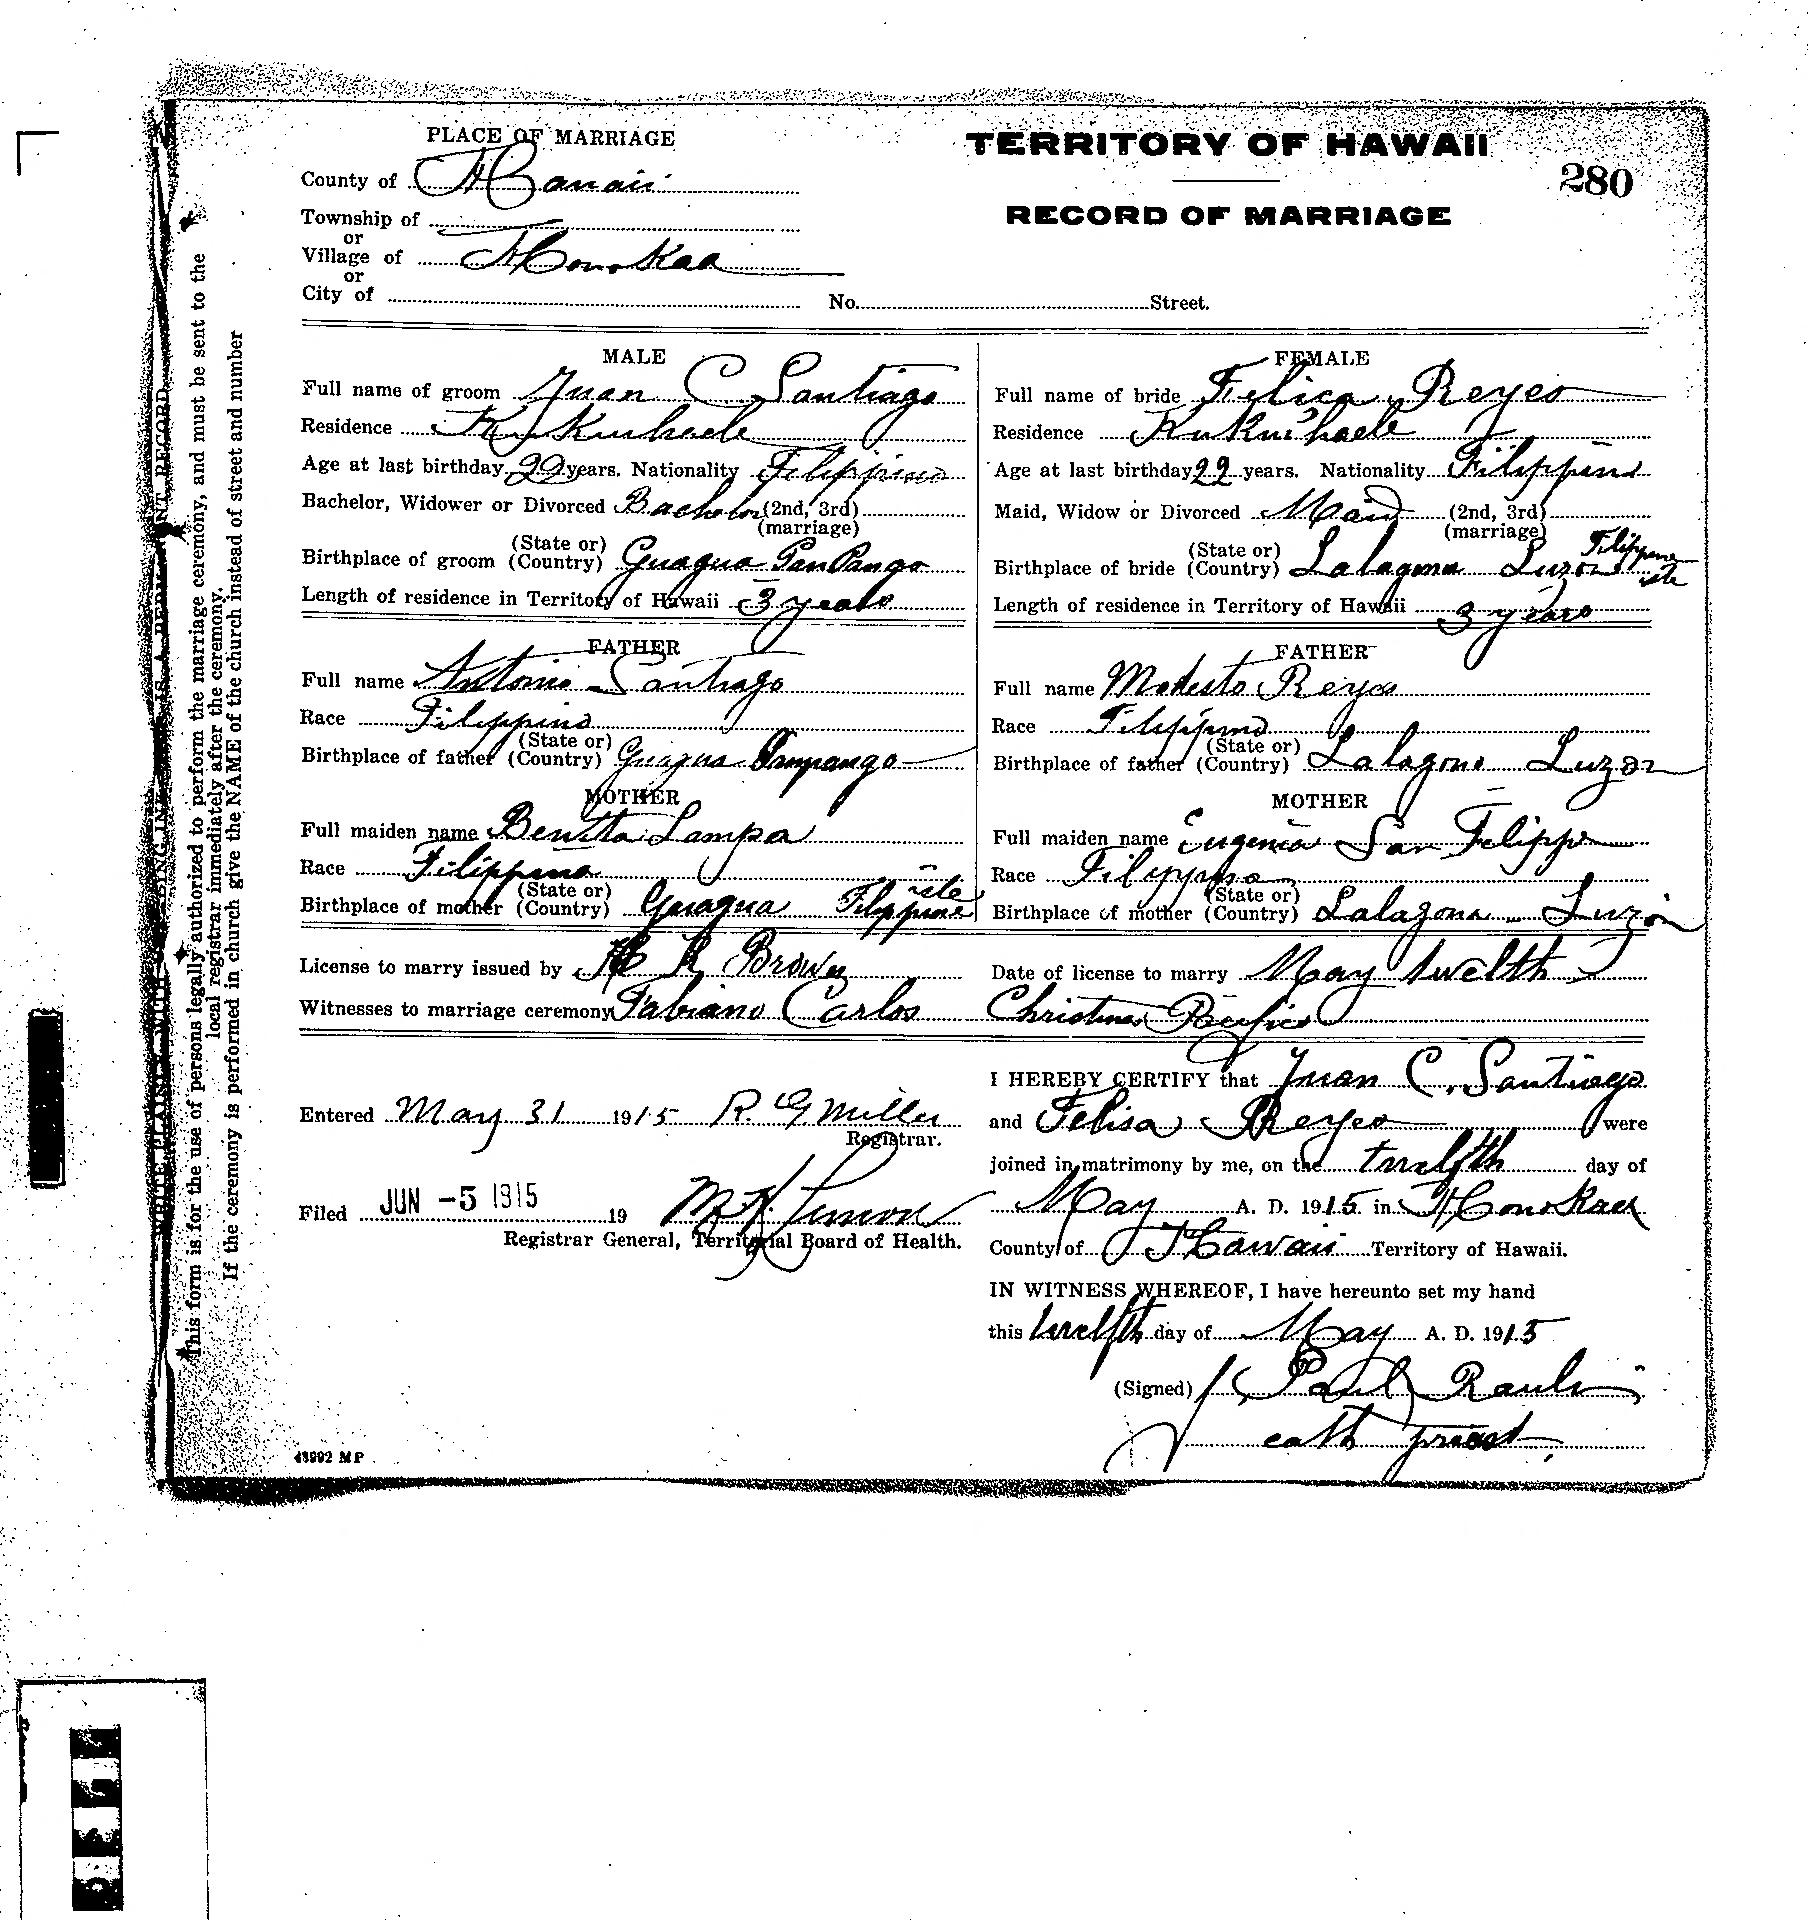 PLACE OF MARRIAGE
TERRITORY OF HAWAII
280
RECORD OF MARRIAGE
County of Hawaii
Township of
or
Village of Honokaa
or
City of No. Street.
MALE
Full name of groom Juan C Santiago
Residence Kukuihaele
Age at last birthday 22 years. Nationality Filippino
Bachelor, Widower or Divorced Bachelor (2nd, 3rd)
(marriage)
Birthplace of groom (State or) (Country) Guagua PanPango
Length of residence in Territory of Hawaii 3 years
FATHER
Full name Antonio Santiago
Race Filippino
Birthplace of father (State or) (Country) Guagua Pampango
MOTHER
Full maiden name Benita Lampa
Race Filippina
Birthplace of mother (State or) (Country) Guagua Filippine isle
FEMALE
Full name of bride Felica Reyes
Residence Kukuihaele
Age at last birthday 22 years. Nationality Filippino
Maid, Widow or Divorced Maid (2nd, 3rd)
(marriage)
Birthplace of bride (State or) (Country) Lalagona Luzon Filippine isle
Length of residence in Territory of Hawaii 3 years
FATHER
Full name Modesto Reyes
Race Filippino
Birthplace of father (State or) (Country) Lalagona Luzon
MOTHER
Full maiden name Eugenia San Filippe
Race Filippina
Birthplace of mother (State or) (Country) Lalagona - Luzon
License to marry issued by H R Brown Date of license to marry May twelth
Witnesses to marriage ceremony Fabiano Carlos Pacifico
Entered May 31 1915 R. G. Miller
Registrar.
Filed JUN -5 1915 19
Registrar General, Territorial Board of Health.
I HEREBY CERTIFY that Juan C. Santiago
and Felisa Reyes were
joined in matrimony by me, on the twelfth day of
May A. D. 1915 in Honokaa
County of Hawaii Territory of Hawaii.
IN WITNESS WHEREOF, I have hereunto set my hand
this twelfth day of May A. D. 1915
(Signed) Paul
cath priest.
43992 MP
This form is for the use of persons legally authorized to perform the marriage ceremony, and must be sent to the
local registrar immediately after the ceremony.
If the ceremony is performed in church give the NAME of the church instead of street and number